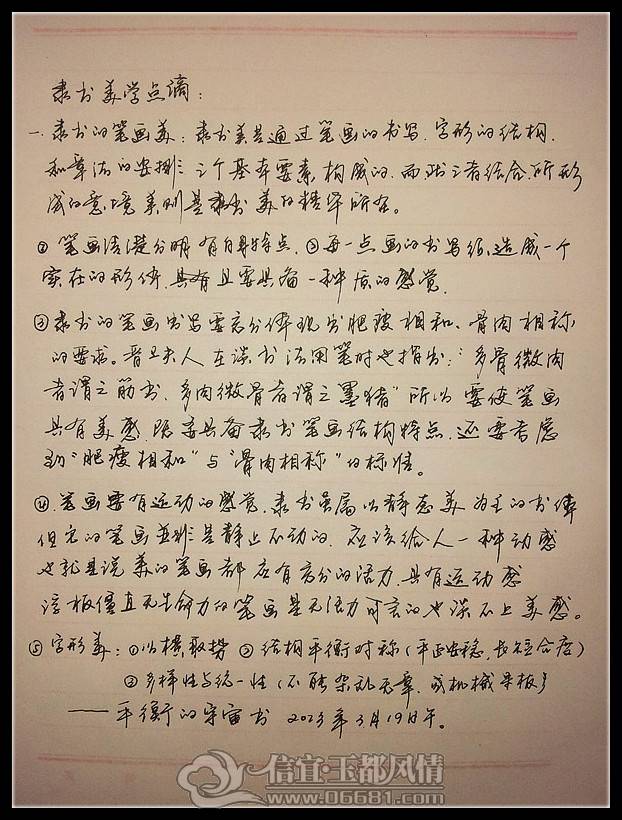 隶书美学点滴:
一、隶书的笔画美:隶书美是通过笔画的书写、字形的结构、
和章法的安排三个基本要素构成的,而此三者结合所形
成的意境美则是隶书美的精华所在。
② 笔画清楚分明有自身特点,③每一点画的书写须造成一个
实在的形体,且要具备一种质的感觉。
③ 隶书的笔画书写要充分体现出肥瘦相和、骨肉相称
的要求。晋卫夫人在谈书法用笔时也指出:“多骨微肉
者谓之筋书,多肉微骨者谓之墨猪”所以要使笔画
具有美感,除要具备隶书笔画结构特点,还要考虑
到“肥瘦相和”与“骨肉相称”的标准。
④ 笔画要有运动的感觉,隶书虽属以静态美为主的书体
但它的笔画并非是静止不动的,应该给人一种动感
也就是说美的笔画都应有充分的活力,具有运动感
谆板僵直无生命力的笔画是无活力可言的也谈不上美感。
⑤ 字形美:①以横取势 ②结构平衡对称(平正安稳,长短合度)
③多样性与统一性(不能杂乱无章,或机械呆板)
——平衡的宇宙书 2023年3月19日午。
信宜·玉都风情
www.06681.com